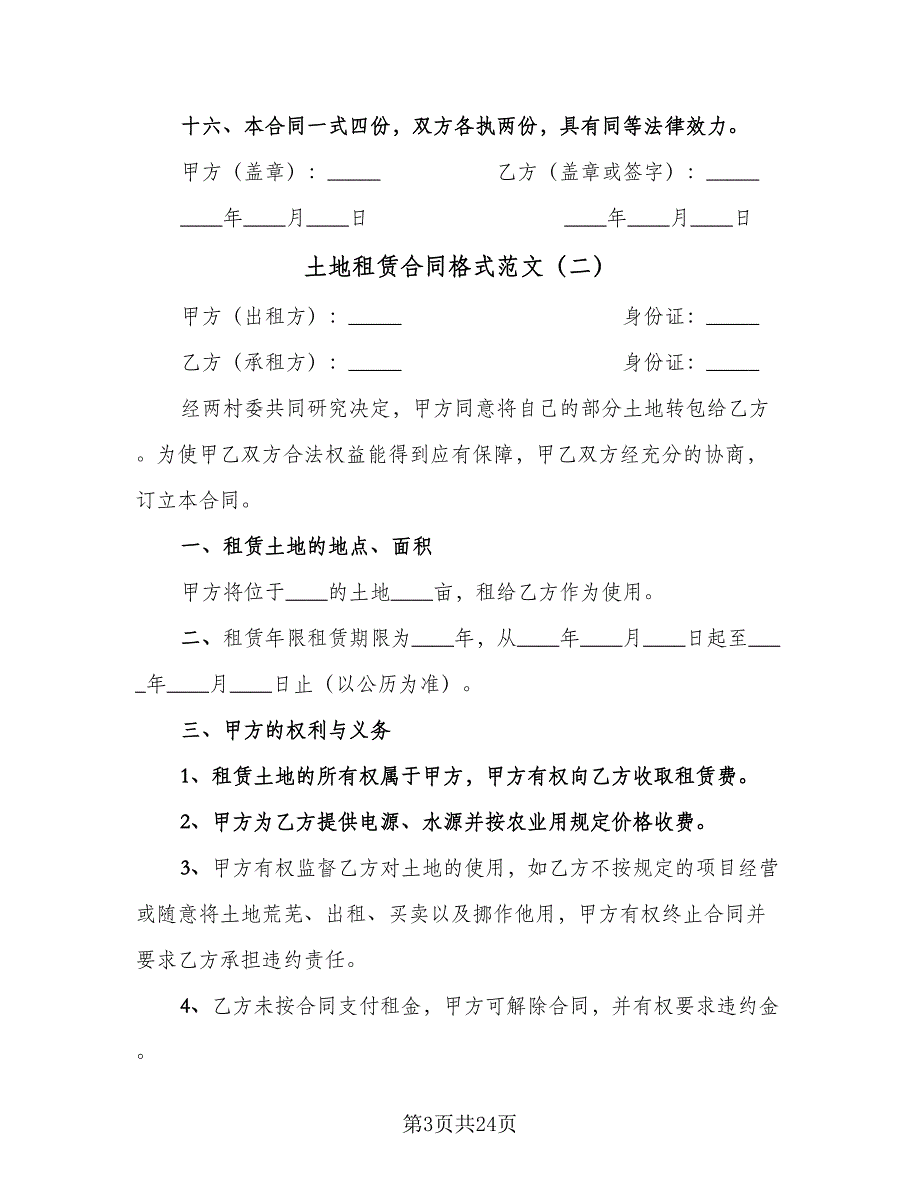 十六、本合同一式四份，双方各执两份，具有同等法律效力。
甲方（盖章）：_____ 乙方（盖章或签字）：_____
____年____月____日 ____年____月____日
土地租赁合同格式范文（二）
甲方（出租方）：_____ 身份证：_____
乙方（承租方）：_____ 身份证：_____
经两村委共同研究决定，甲方同意将自己的部分土地转包给乙方
。为使甲乙双方合法权益能得到应有保障，甲乙双方经充分的协商，
订立本合同。
一、租赁土地的地点、面积
甲方将位于____的土地____亩，租给乙方作为使用。
二、租赁年限租赁期限为____年，从____年____月____日起至___
_年____月____日止（以公历为准）。
三、甲方的权利与义务
1、租赁土地的所有权属于甲方，甲方有权向乙方收取租赁费。
2、甲方为乙方提供电源、水源并按农业用规定价格收费。
3、甲方有权监督乙方对土地的使用，如乙方不按规定的项目经营
或随意将土地荒芜、出租、买卖以及挪作他用，甲方有权终止合同并
要求乙方承担违约责任。
4、乙方未按合同支付租金，甲方可解除合同，并有权要求违约金
。
第3页共24页